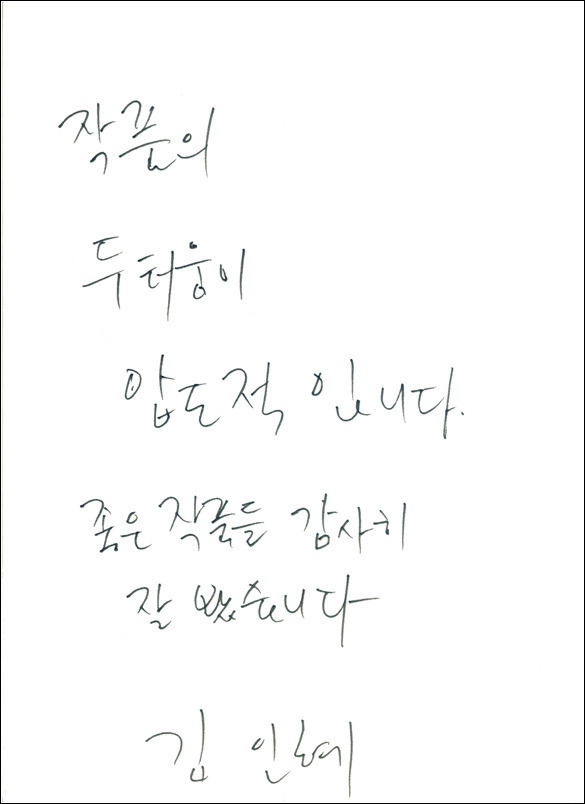 작품의
두터움이
압도적 입니다.
좋은 작품들 감사히
잘 봤습니다
김 인혜